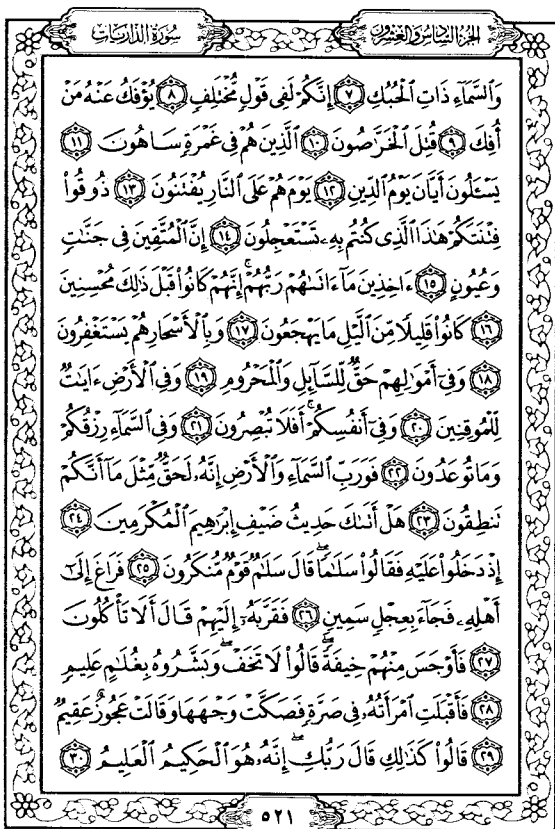 سُورَةُ الذَّارِيَاتِ
الجزء السادس والعشرون
وَالسَّمَآءِ ذَاتِ الْحُبُكِ ٧ إِنَّكُمْ لَفِى قَوْلٍ مُّخْتَلِفٍ ٨ يُؤْفَكُ عَنْهُ مَنْ
أُفِكَ ٩ قُتِلَ الْخَرَّٰصُونَ ١٠ الَّذِينَ هُمْ فِى غَمْرَةٍ سَاهُونَ ١١
يَسْـَٔلُونَ أَيَّانَ يَوْمُ الدِّينِ ١٢ يَوْمَ هُمْ عَلَى النَّارِ يُفْتَنُونَ ١٣ ذُوقُوا۟
فِتْنَتَكُمْ هَٰذَا الَّذِى كُنتُم بِهِۦ تَسْتَعْجِلُونَ ١٤ إِنَّ الْمُتَّقِينَ فِى جَنَّٰتٍ
وَعُيُونٍ ١٥ ءَاخِذِينَ مَآ ءَاتَىٰهُمْ رَبُّهُمْ ۚ إِنَّهُمْ كَانُوا۟ قَبْلَ ذَٰلِكَ مُحْسِنِينَ
١٦ كَانُوا۟ قَلِيلًا مِّنَ الَّيْلِ مَا يَهْجَعُونَ ١٧ وَبِالْأَسْحَارِ هُمْ يَسْتَغْفِرُونَ
١٨ وَفِىٓ أَمْوَٰلِهِمْ حَقٌّ لِّلسَّآئِلِ وَالْمَحْرُومِ ١٩ وَفِى الْأَرْضِ ءَايَٰتٌ
لِّلْمُوقِنِينَ ٢٠ وَفِىٓ أَنفُسِكُمْ ۚ أَفَلَا تُبْصِرُونَ ٢١ وَفِى السَّمَآءِ رِزْقُكُمْ
وَمَا تُوعَدُونَ ٢٢ فَوَرَبِّ السَّمَآءِ وَالْأَرْضِ إِنَّهُۥ لَحَقٌّ مِّثْلَ مَآ أَنَّكُمْ
تَنطِقُونَ ٢٣ هَلْ أَتَىٰكَ حَدِيثُ ضَيْفِ إِبْرَٰهِيمَ الْمُكْرَمِينَ ٢٤
إِذْ دَخَلُوا۟ عَلَيْهِ فَقَالُوا۟ سَلَٰمًا ۖ قَالَ سَلَٰمٌ قَوْمٌ مُّنكَرُونَ ٢٥ فَرَاغَ إِلَىٰٓ
أَهْلِهِۦ فَجَآءَ بِعِجْلٍ سَمِينٍ ٢٦ فَقَرَّبَهُۥٓ إِلَيْهِمْ قَالَ أَلَا تَأْكُلُونَ
٢٧ فَأَوْجَسَ مِنْهُمْ خِيفَةً ۖ قَالُوا۟ لَا تَخَفْ ۖ وَبَشَّرُوهُ بِغُلَٰمٍ عَلِيمٍ
٢٨ فَأَقْبَلَتِ امْرَأَتُهُۥ فِى صَرَّةٍ فَصَكَّتْ وَجْهَهَا وَقَالَتْ عَجُوزٌ عَقِيمٌ
٢٩ قَالُوا۟ كَذَٰلِكِ قَالَ رَبُّكِ ۖ إِنَّهُۥ هُوَ الْحَكِيمُ الْعَلِيمُ ٣٠
٥٢١